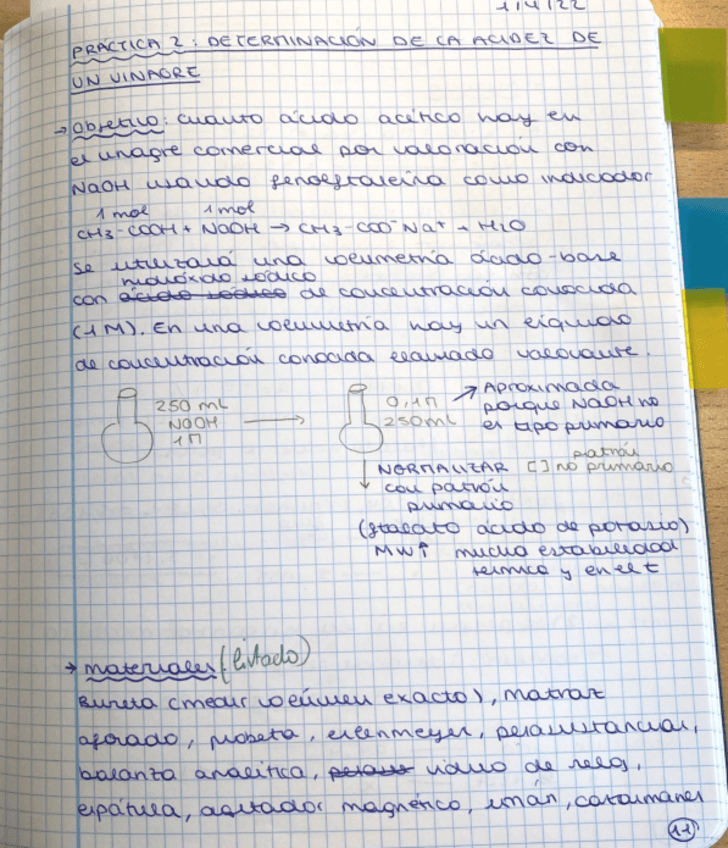 1/4/22
PRÁCTICA 2: DETERMINACIÓN DE LA ACIDEZ DE
UN VINAGRE
→ Objetivo: cuanto ácido acético hay en
el vinagre comercial por valoración con
NaOH usando fenolftaleína como indicador
1 mol 1 mol
CH3-COOH + NaOH → CH3-COO⁻Na⁺ + H2O
Se utilizará una volumetría ácido-base
hidróxido sódico
con ácido sódico de concentración conocida
(1M). En una volumetría hay un líquido
de concentración conocida llamado valorante.
250 mL
NaOH
1M
→
0,1M
250mL
↗ Aproximada
porque NaOH no
es tipo primario
patrón
↓ NORMALIZAR [ ] no primario
con patrón
primario
(ftalato ácido de potasio)
MW↑ mucha estabilidad
térmica y en el t
→ Materiales (listado)
Bureta (medir volúmen exacto), matraz
aforado, probeta, erlenmeyer, pesasustancias,
balanza analítica, vidrio de reloj,
espátula, agitador magnético, imán, catalmanes
11